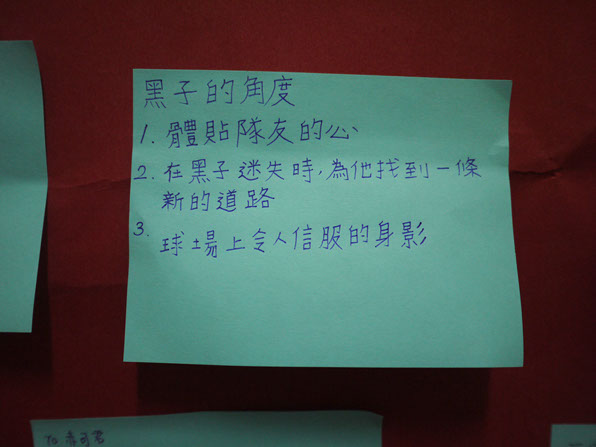 黑子的角度
1. 體貼隊友的心
2. 在黑子迷失時,為他找到一條
新的道路
3. 球場上令人信服的身影
To 赤司君